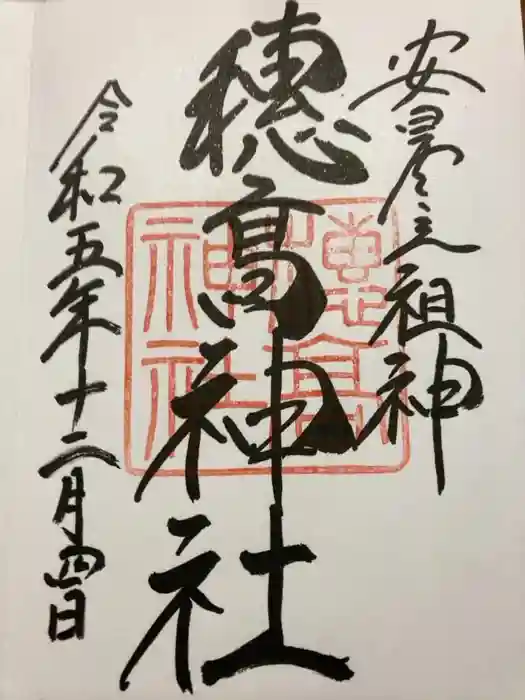 安曇之祖神
穂高神社
穂高神社
令和五年十二月四日